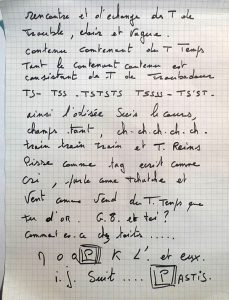 rencontre et d'échange du T de
Trouble, claire et Vague.
contenu contenant du T Temps
Tant le contenant contenu est
consistant du T de Troubadour
TS- TSS. TSTSTS TSSSS- TS'ST.
ainsi l'odissée suis le cours,
champs tant, ch-ch-ch-ch-ch.
train train train et T. Reims
Pisse comme tag écrit comme
cri, parle comme Tchatche et
Vent comme Vend du T. Temps que
tu d'OR. G.B. et toi?
comment
η o a P K L'. et eux.
i.j. Suit .... P ASTIS.